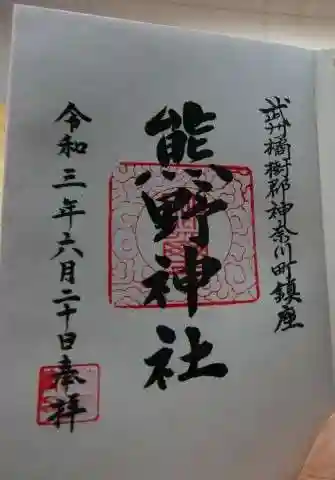 武州橘樹郡神奈川町鎮座
熊野神社
令和三年六月二十日奉拝